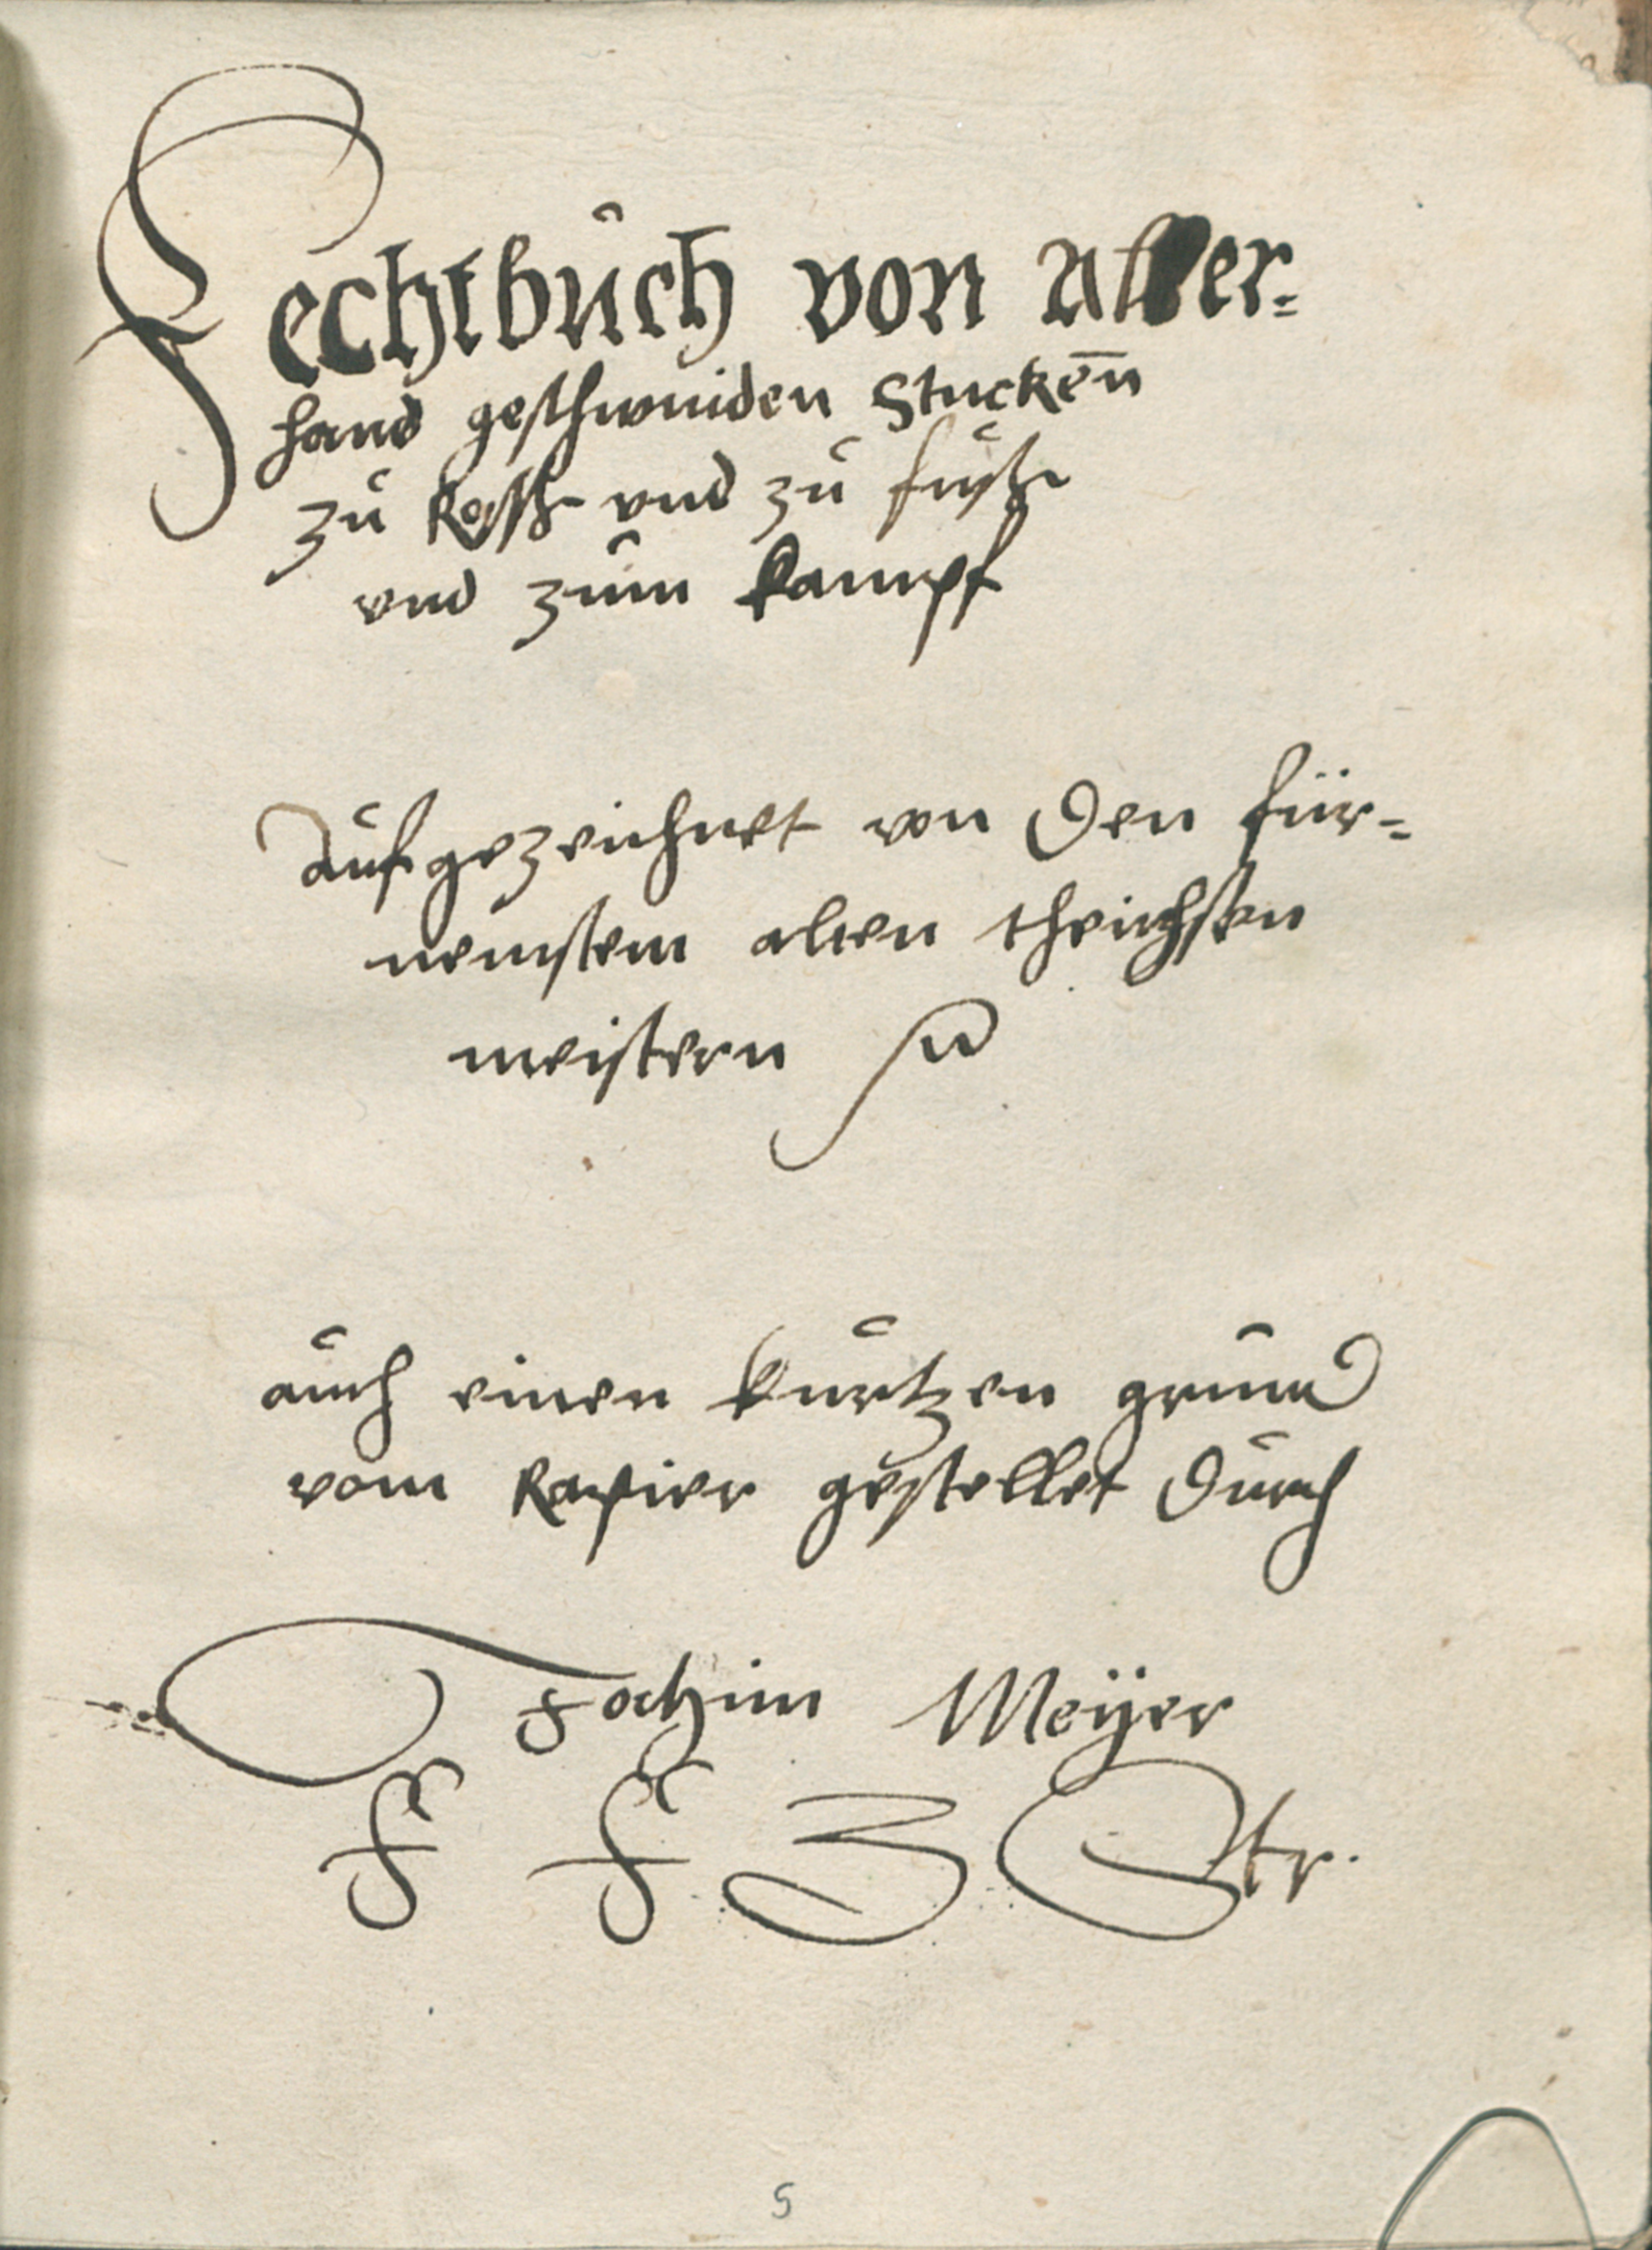 Fechtbuch von Aller-
hand geschwinden Stucken̄
zu Ross und zu fuss
und zum kampf
Aufgezeichnet von den für-
nemstem alten
meistern
auch einen kurtzen grund
vom Rapier gestellet durch
Jochim Meÿer
F F Z Str.
5